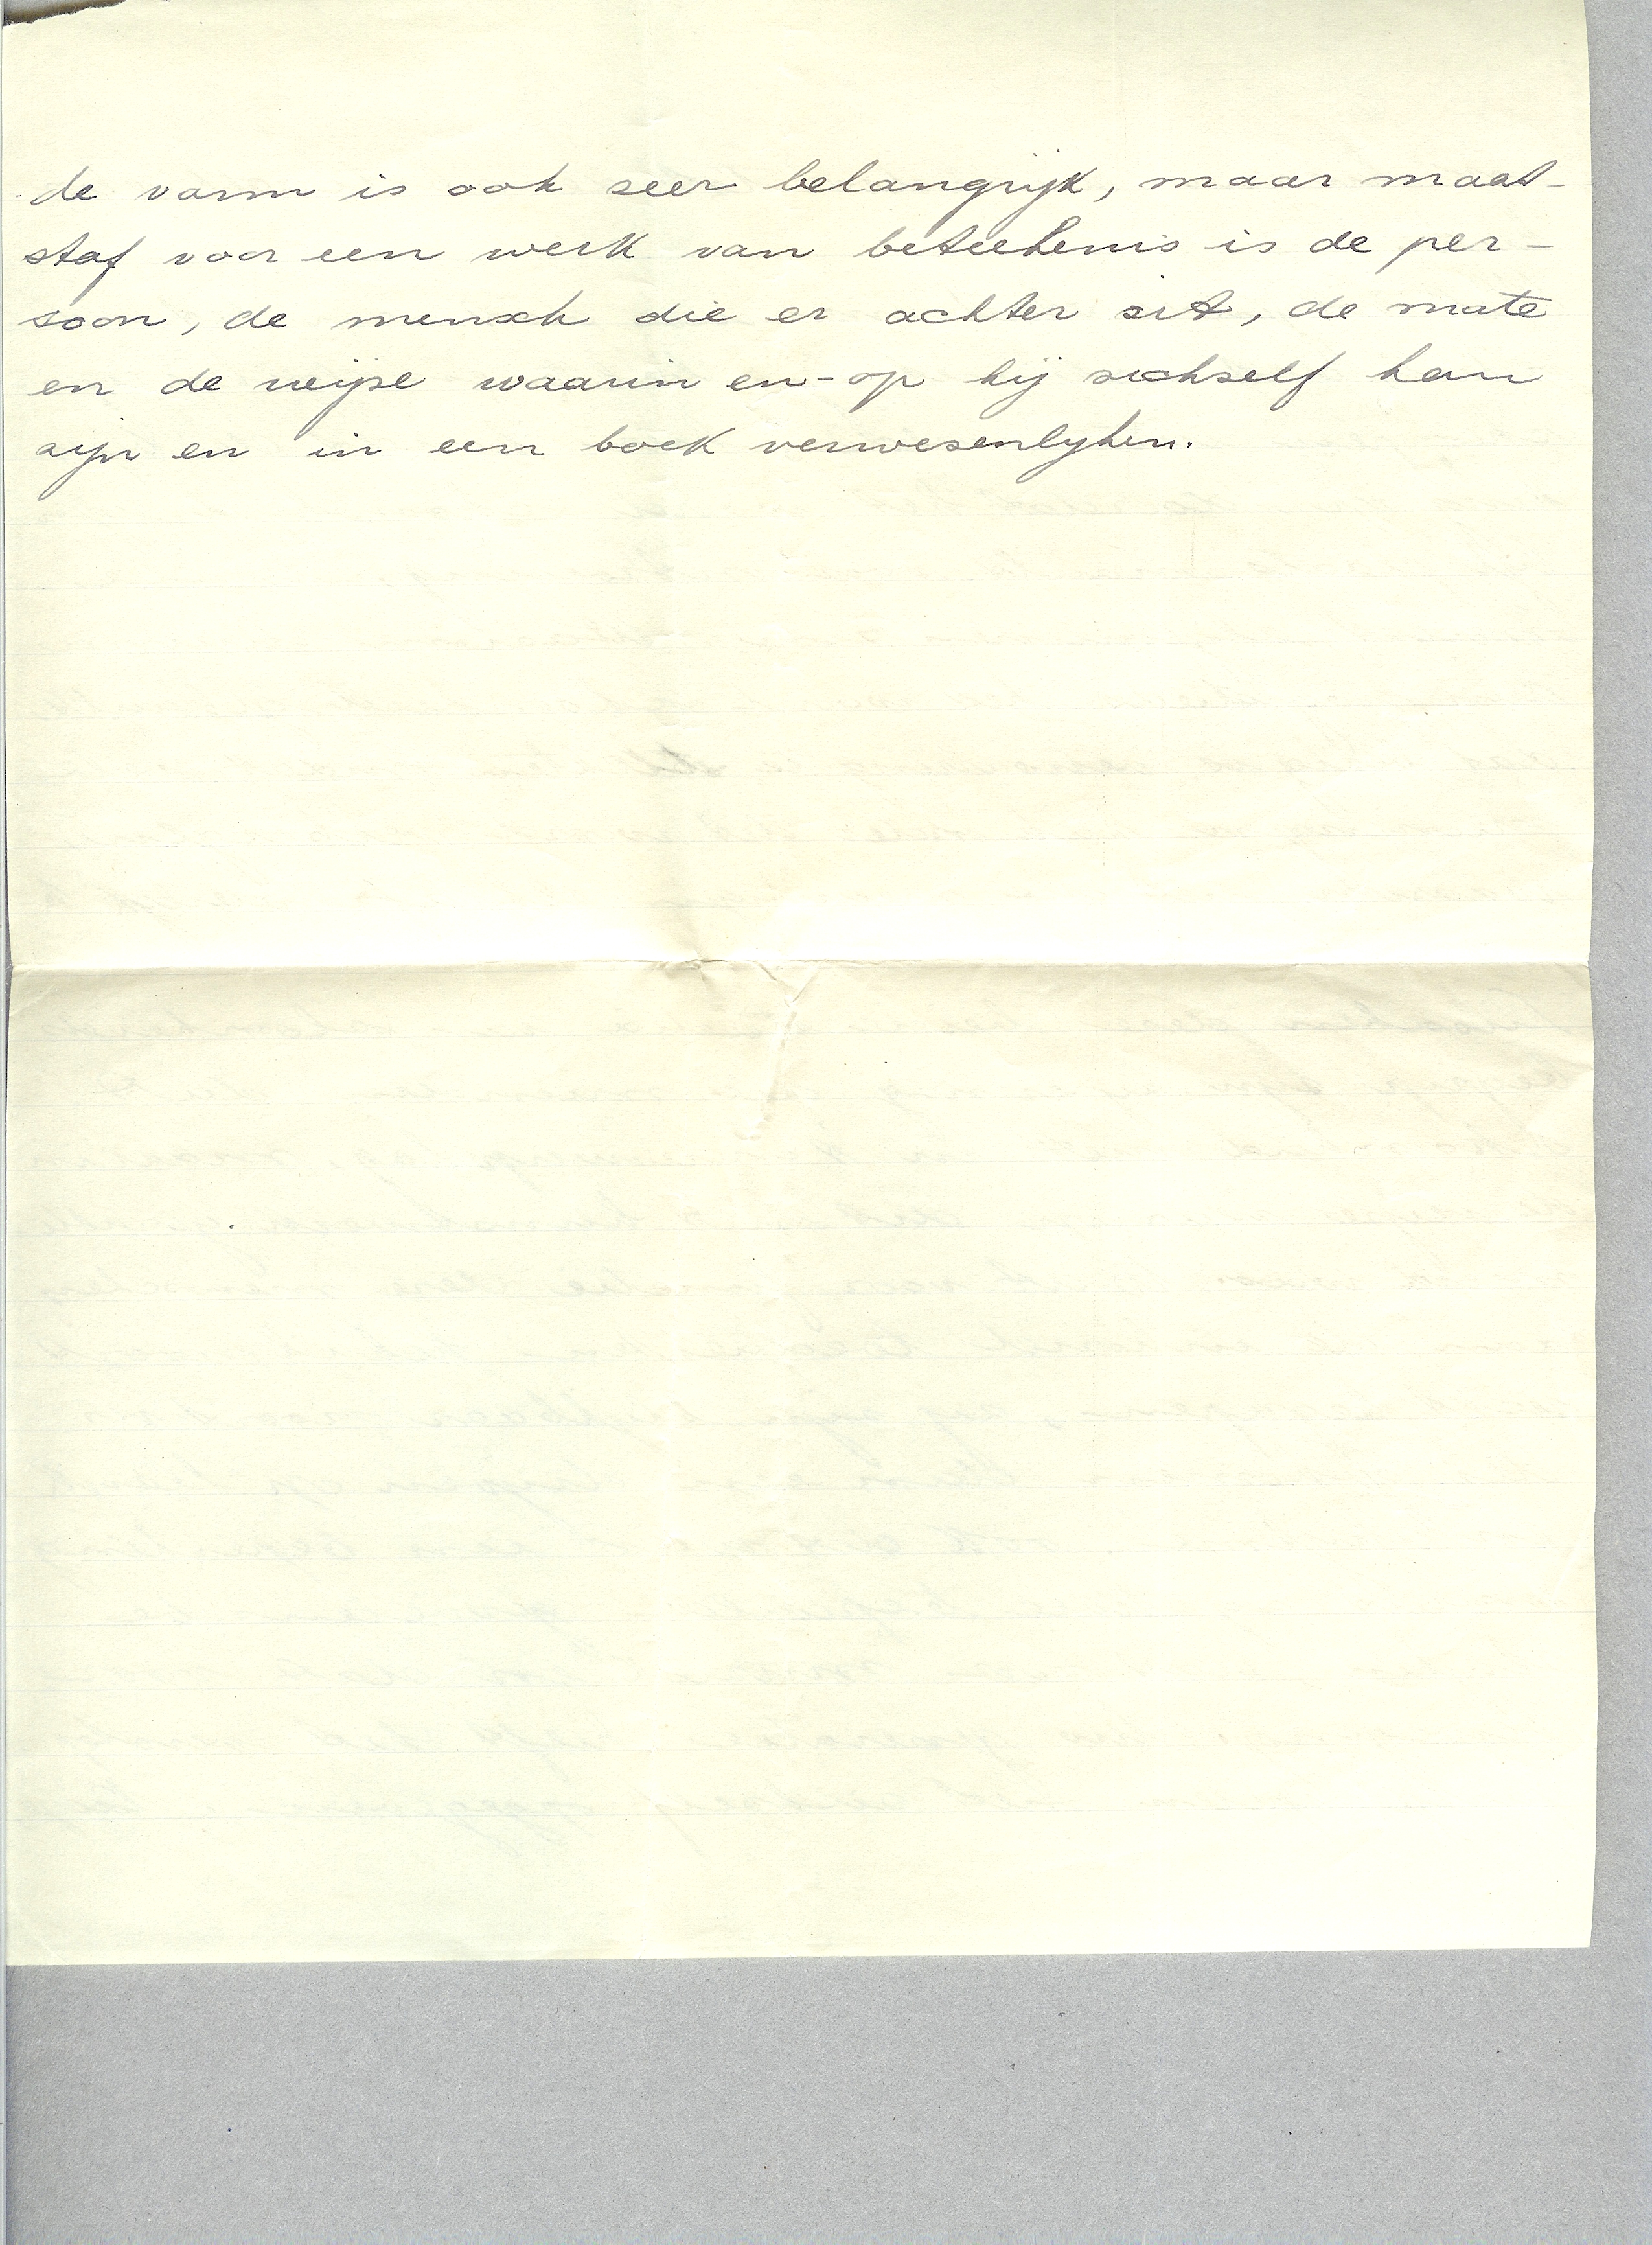 de vorm is ook zeer belangrijk, maar maat-
staf voor een werk van beteekenis is de per-
soon, de mensch die er achter zit, de mate
en de wijze waarin en-op hij zichzelf kan
zijn en in een boek verwezenlyken.